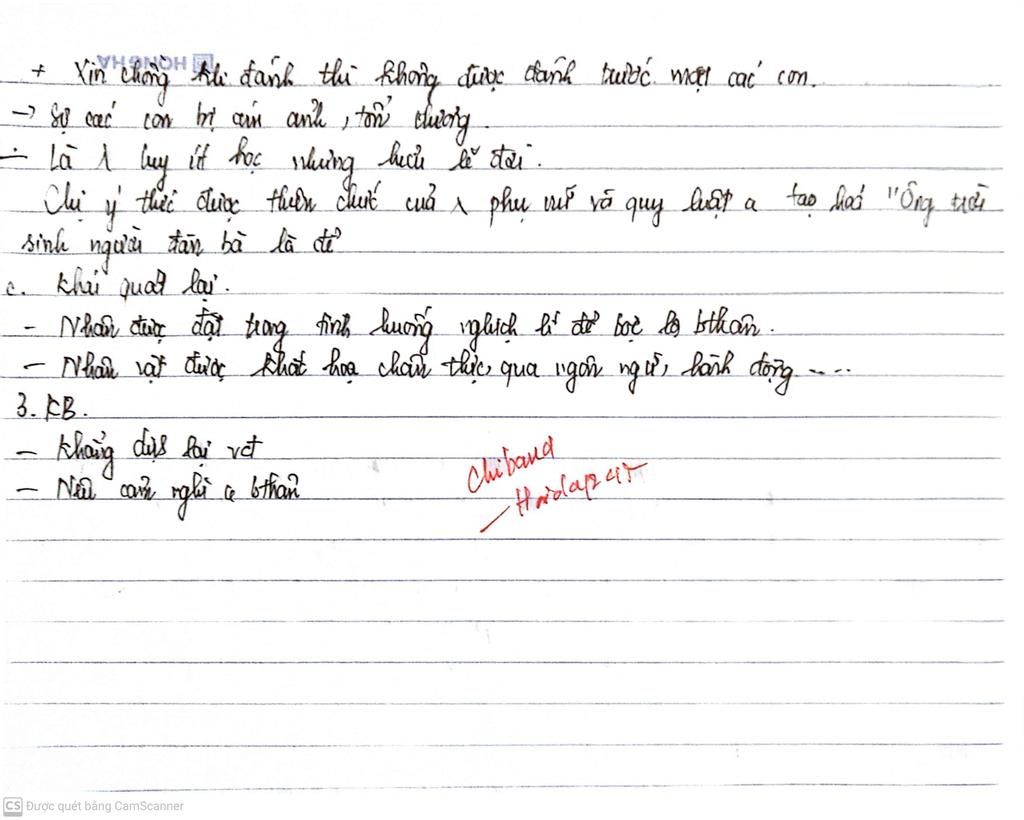 HONG HA
+ Xin chồng khi đánh thì không được đánh trước mặt các con.
→ Sợ các con bị ám ảnh, tổn thương.
Là 1 tuy ít học nhưng hiểu lẽ đời.
Chị ý thức được thiên chức của 1 phụ nữ và quy luật a tạo hoá "Ông trời
sinh người đàn bà là để
c. Khái quát lại.
- Nhân được đặt trong tình huống nghịch lí để bộc lộ bthân.
- Nhân vật được khắc hoạ chân thực, qua ngôn ngữ, hành động ....
3. KB.
- Khẳng lại vđ
- Nêu cảm nghĩ a bthân
Chibaud
- Hoidap247
CS Được quét bằng CamScanner